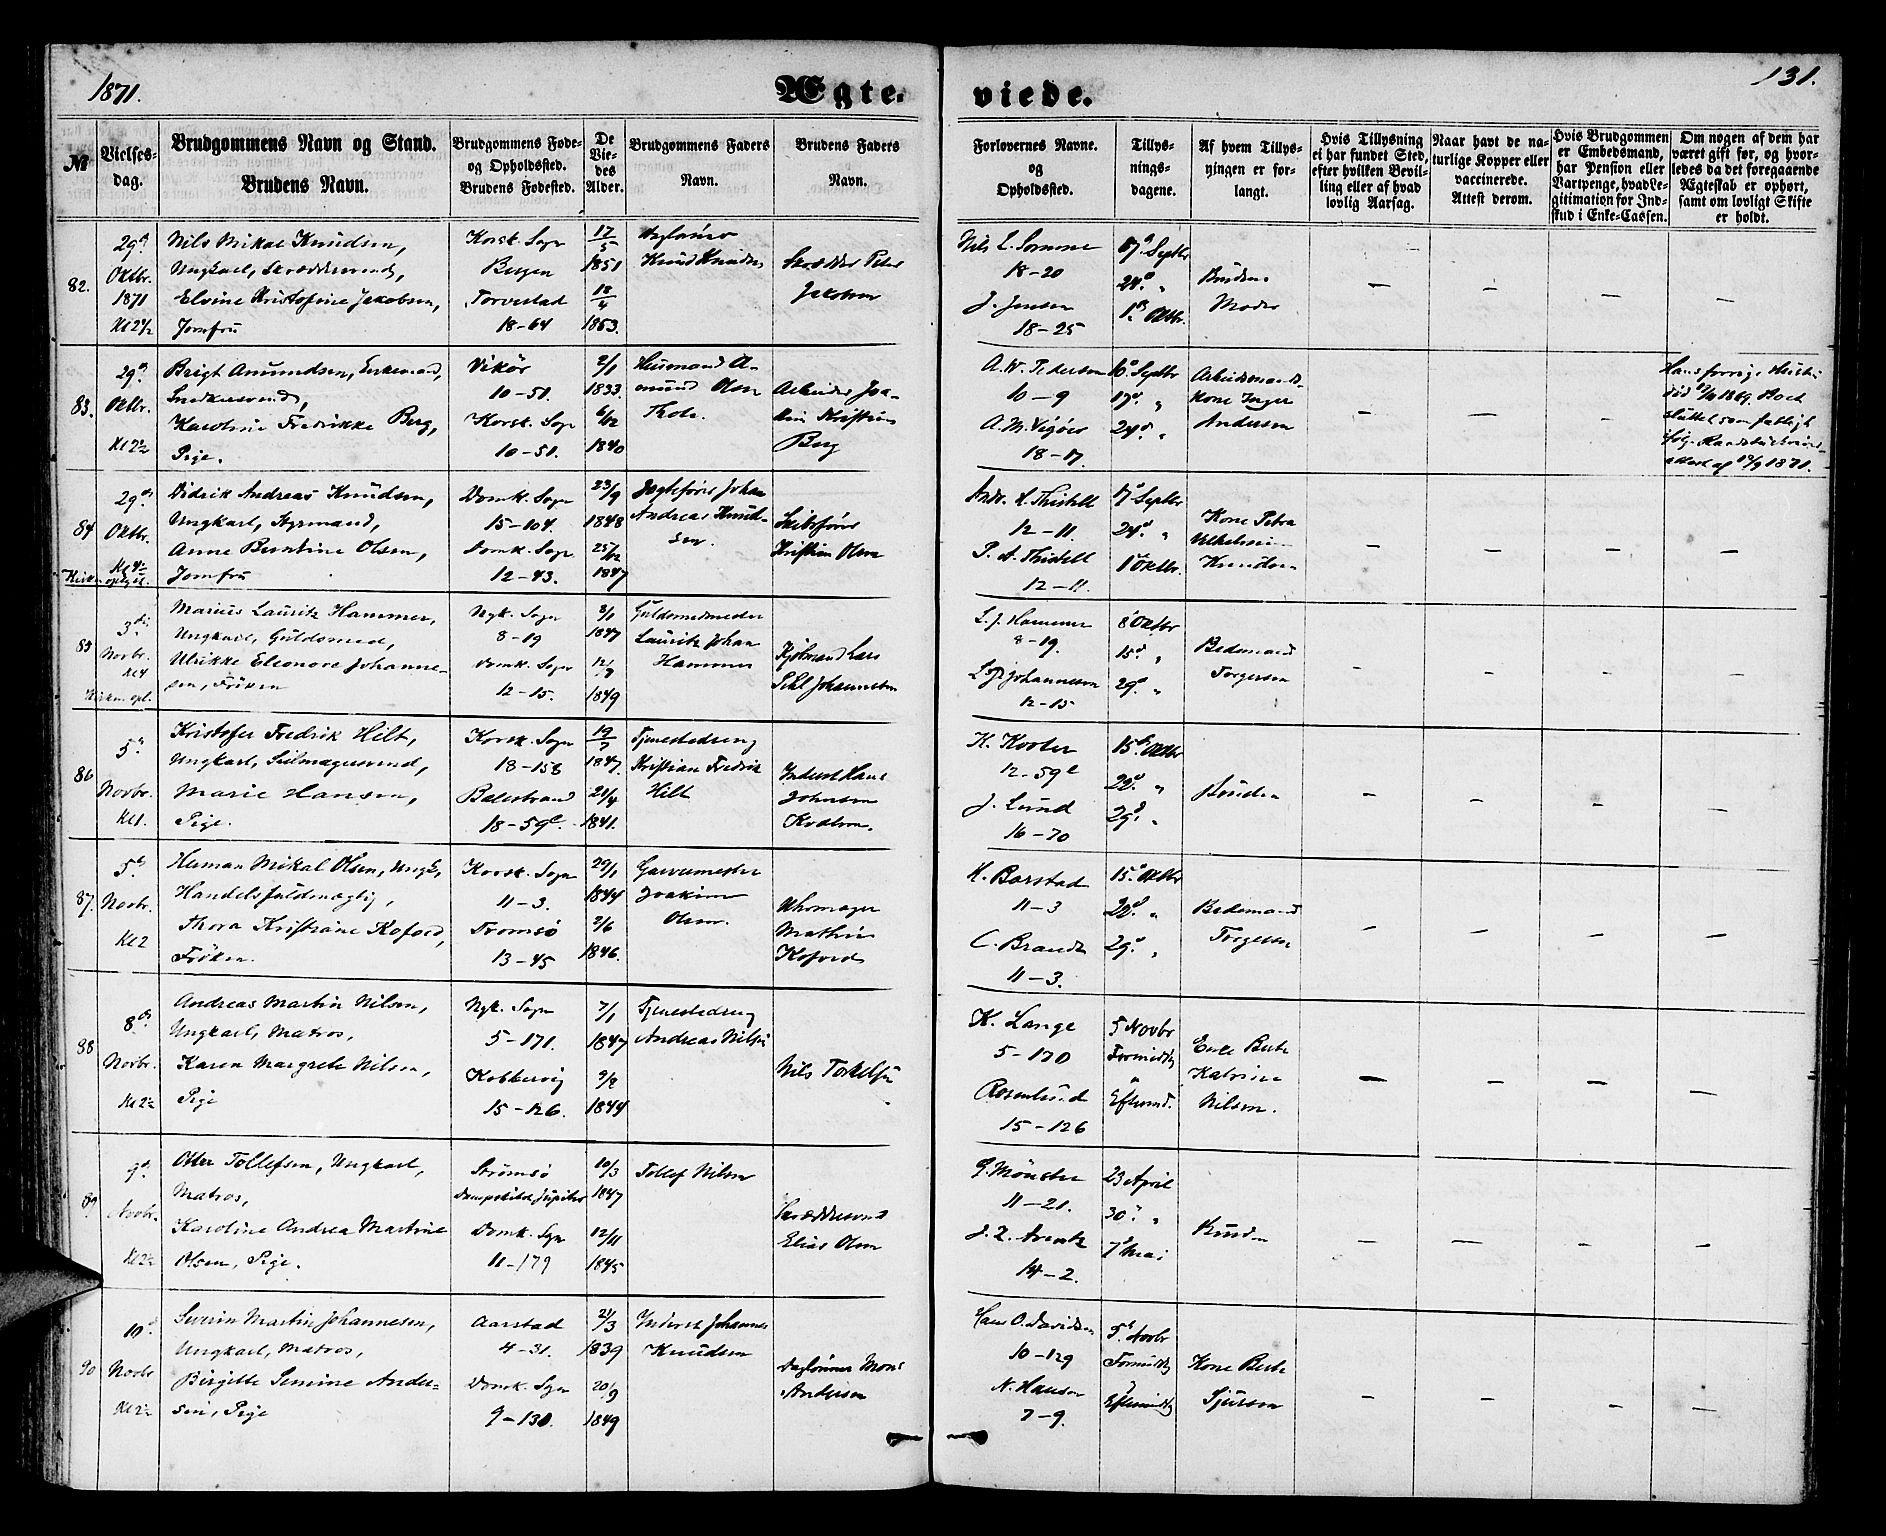 1871.
Ægte.
viede.
131.
№
Vielses-
dag.
Brudgommens Navn og Stand.
Brudens Navn.
Brudgommens Føde-
og Opholdssted.
Brudens Fødested.
De
Vie-
des
Alder.
Brudgommens Faders
Navn.
Brudens Faders
Navn.
Forlovernes Navne.
og
Opholdssted.
Tillys-
nings-
dagene.
Af hvem Tillys-
ningen er for-
langt.
Hvis Tillysning
ei har fundet Sted,
efter hvilken Bevil-
ling eller af hvad
lovlig Aarsag.
Naar havt de na-
turlige Kopper eller
vaccinerede.
Attest derom.
Hvis Brudgommen
er Embedsmand,
har Pension eller
Vartpenge, hvad Le-
gitimation for Ind-
skud i Enke-Cassen.
Om nogen af dem har
været gift før, og hvor-
ledes da det foregaaende
Ægteskab er ophørt,
samt om lovligt Skifte
er holdt.
82.
29d
Oktbr.
1871
Kl 2 1/2
Nils Mikal Knudsen,
Ungkarl, Skræddersvend,
Elvine Kristofine Jakobsen,
Jomfru
Korsk. Sogn
Bergen
Torvestad
18-64
17/5
1851
18/4
1853.
Knud Knudsen
Skrædder Peter
Jakobsen
Nils L. Somme
18-20
J. Jensen
18-25
17d Septbr
24d "
1d Oktbr.
Brudens
Moder
83.
29d
Oktbr.
Kl 2 1/2
Brigt Amundsen, Enkemand,
Snedkersvend,
Karoline Fredrikke Berg,
Pige.
Vikør
10-51.
Korsk. Sogn
10-51.
2/1
1833.
6/12
1840
Husmand A-
mund Olsen
Arbeider Joa-
kim Kristian
Berg
A. W. Pedersen
10-9
A. M. Vigøes
18-17.
10d Septbr
17d "
24d "
Arbeidsmands-
kone Inger
Andersen
84
29d
Oktbr.
Didrik Andreas Knudsen,
Ungkarl, Styrmand,
Anne Berntine Olsen,
Jomfru
Domk. Sogn
15-104.
Domk. Sogn
12-43.
23/9
1848
25/12
1847
Jagtefører Johan
Andreas Knud-
sen.
Skibsfører
Kristian Olsen
Andr. L. Thistell
12-11.
P. A. Thistell
12-11.
17d Septbr
24d "
1d Oktbr.
Kone Petra
Vilhelmine
Knudsen
85
3die
Novbr.
Kl 4
Kirken opl.
Marius Lauritz Hammer,
Ungkarl, Guldsmed,
Ulrikke Eleonore Johanne-
sen, Frøken
Nyk. Sogn
8-19
Domk. Sogn
12-15.
3/1
1847
1849
Guldsmedmester
Lauritz Johan
Hammer
Kjøbmand Lars
Johannesen
L. J. Hammer
8-19.
Johannesen
12-15
8d Oktbr
15d "
29d "
Bedemand
Torgersen
86
5d
Novbr.
Kl 1.
Kristofer Fredrik Hilt,
Ungkarl, Seilmagersvend,
Marie Hansen,
Pige.
Korsk. Sogn
18-158
Balestrand
18-59c.
19/7
1847.
21/4
1841.
Tjenestedreng
Kristian Fredrik
Hilt
Inderst Hans
Johnsen
K. Koster
12-59c
J. Lund
16-70
15d Oktbr
22d "
29d "
Bruden
87.
5d
Novbr.
Kl 2
Herman Mikal Olsen, Ungk.,
Handelsfuldmægtig,
Thora Kristiane Kofoed,
Frøken.
Korsk. Sogn
11-3.
Tromsø
13-45
29/1
1844
2/6
1846.
Garvermester
Joakim
Olsen.
Uhrmager
Mathias
Kofoed
H. Barstad
11-3
C. Brandt
11-3.
15d Oktbr
22d "
29d "
Bedemand
Torgersen
88
8de
Novbr.
Kl 2 1/2
Andreas Martin Nilsen,
Ungkarl, Matros,
Karen Margrete Nilsen,
Pige
Nyk. Sogn
5-171.
Kobbervig
15-126.
7/1
1847
9/8
1844
Tjenestedreng
Andreas Nilsen
Nils Torkelsen
K. Lange
5-170
Rosenlund
15-126
5 Novbr
Formidd.
"
Eftermd.
Enke Berte
Katrine
Nilsen.
89
9d
Novbr.
Kl 2 1/2
Otter Tollefsen, Ungkarl,
Matros,
Karoline Andrea Martine
Olsen, Pige.
Strømsø
Dampskibet Jupiter
Domk. Sogn
11-179
10/3
1847
12/11
1845
Tollef Nilsen
Skræddersvend
Elias Olsen
G. Mönster
11-21.
J. R. Arentz
14-2.
23 April
30d "
7d Mai
Bruden
90
10d
Novbr
Kl 2 1/2
Severin Martin Johannesen,
Ungkarl, Matros,
Birgitte Semine Ander-
sen, Pige
Aarstad
4-31.
Domk. Sogn
9-130.
21/3
1839
20/9
1849
Inderst Johannes
Knudsen
Daglønner Mons
Andersen
Hans O. Davidsen
10-129
N. Hansen
7-9.
5d Novbr
Formidd.
Eftermidd.
Kone Berte
Sjursen